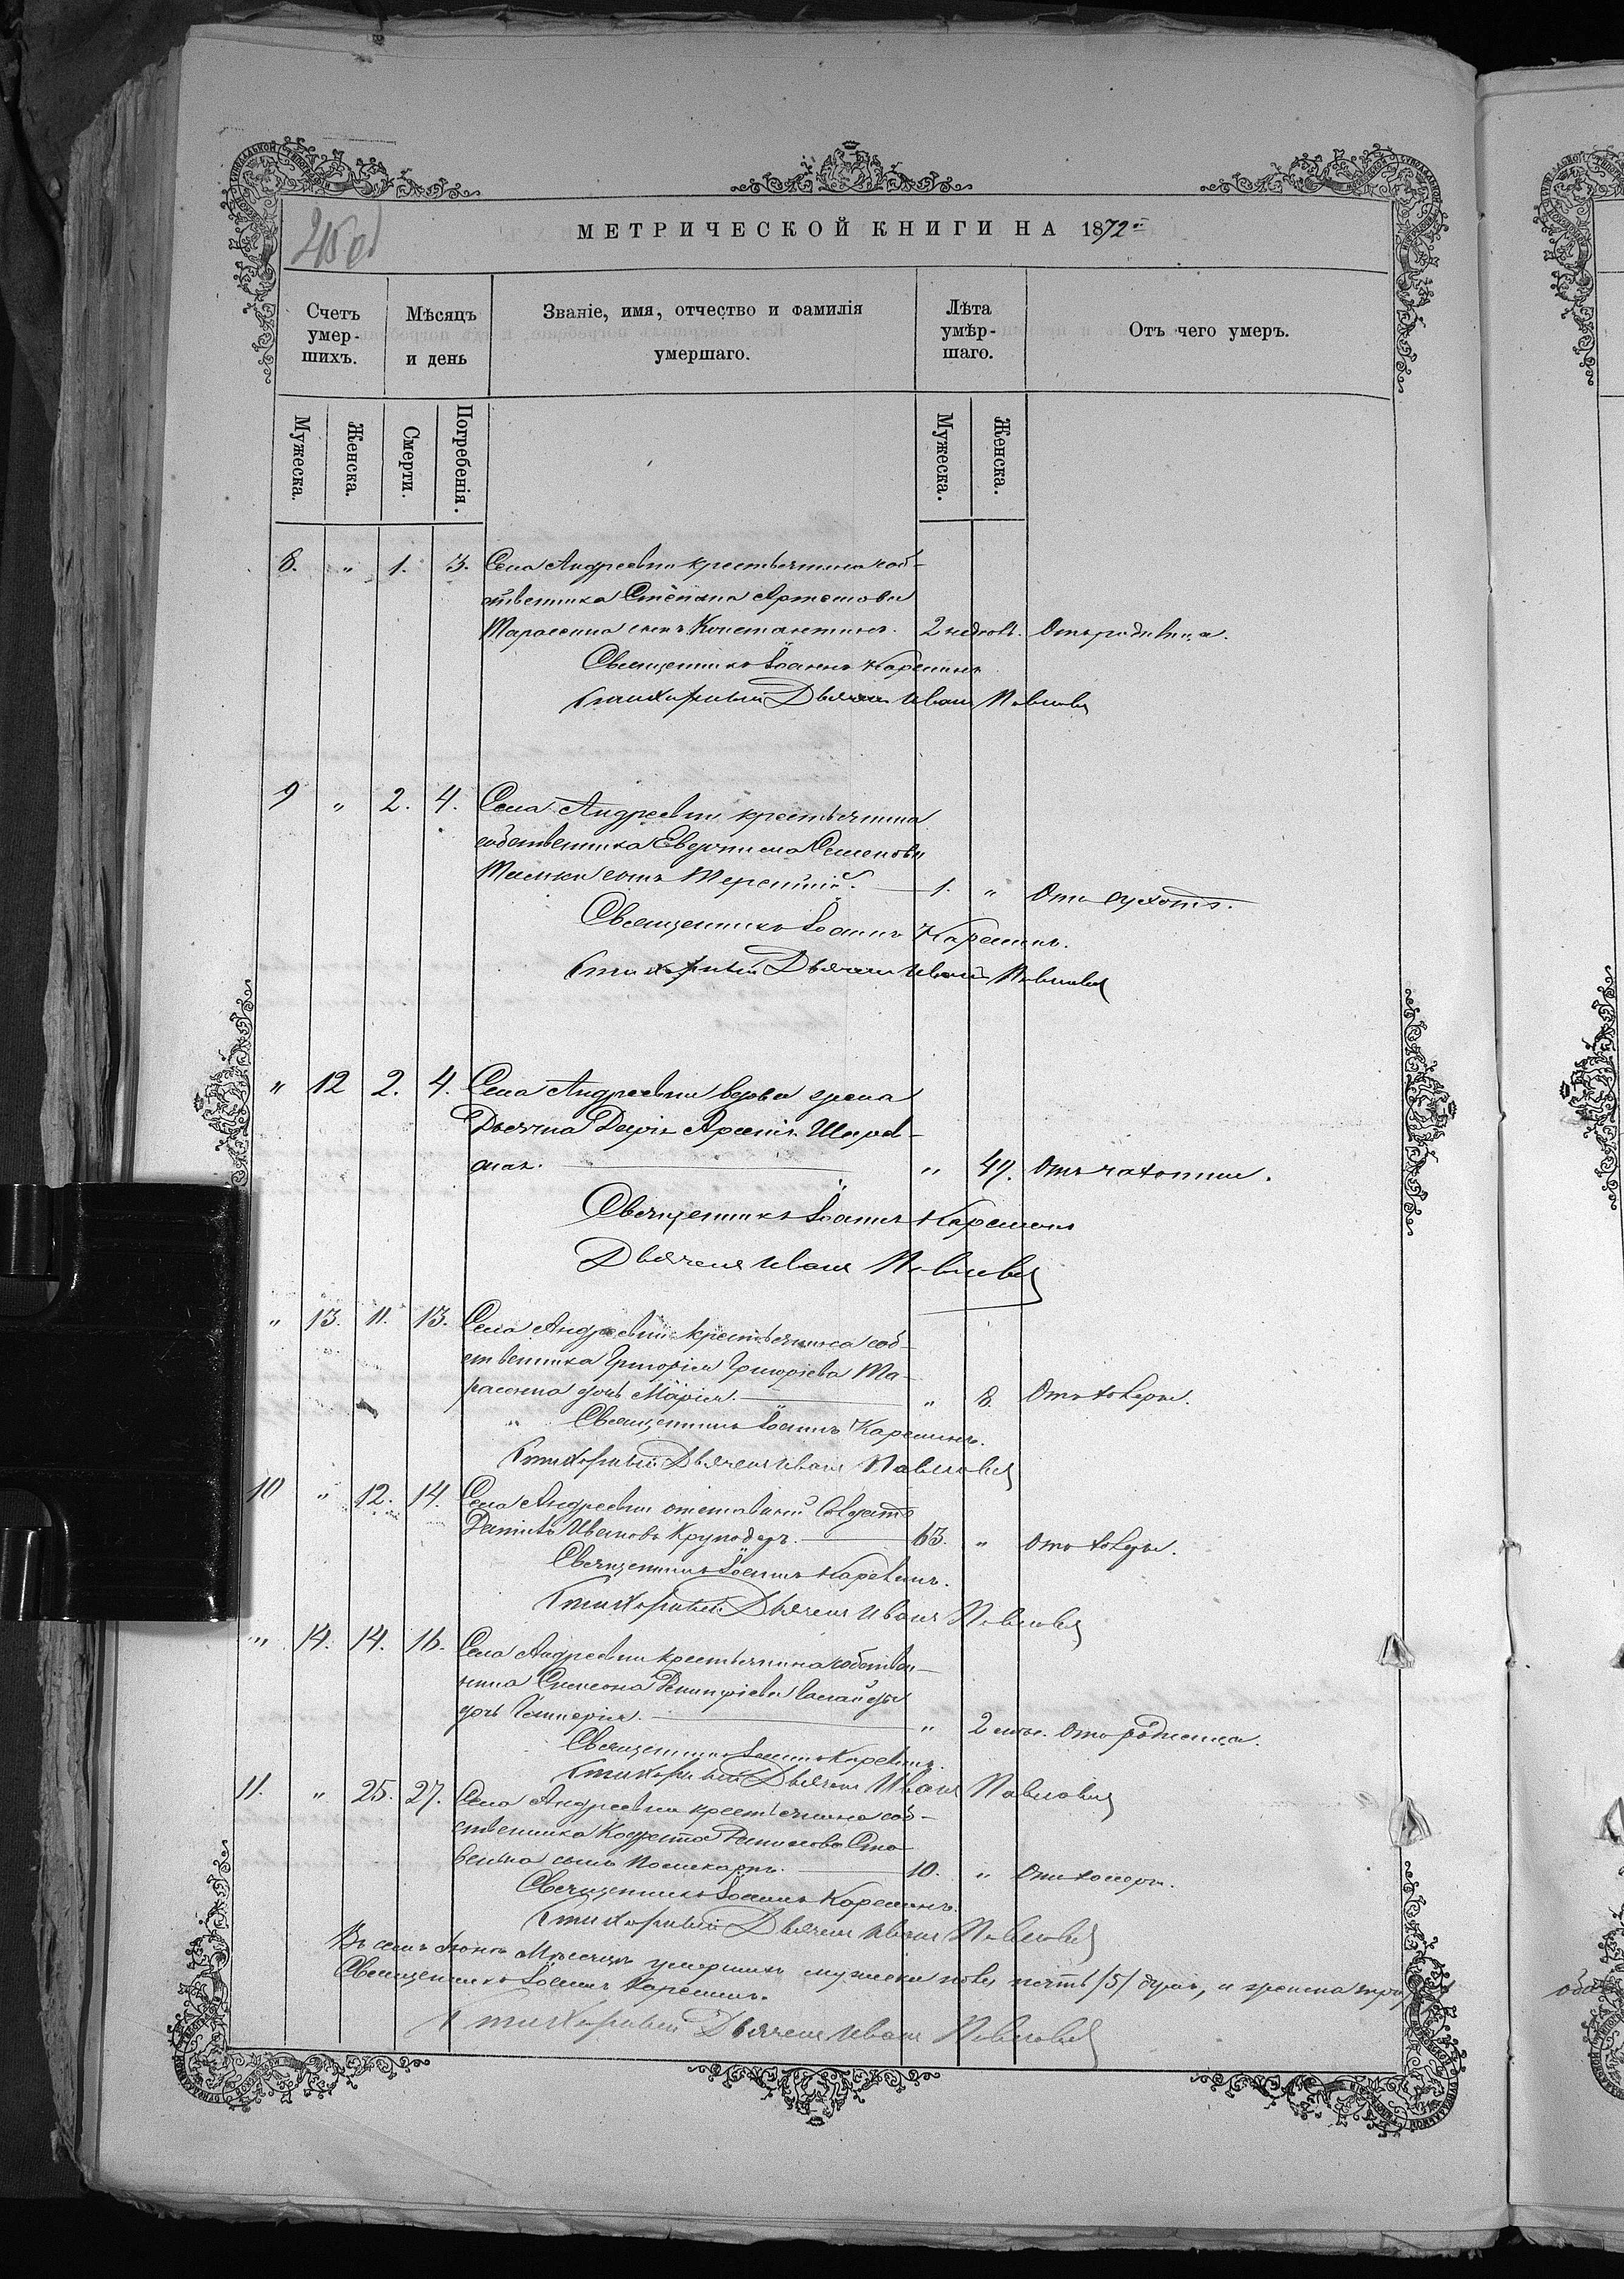 МЕТРИЧЕСКОЙ КНИГИ НА 1872
Счетъ умер-шихъ. Мѣсяцъ и день Званіе, имя, отчество и фамилія умершаго. Лѣта умѣр-шаго. Отъ чего умеръ.
Мужеска. Женска. Смерти. Погребенія. Мужеска. Женска.
8. " 1. 3. Села Андреевки крестьянина соб-
ственника Степана Артемова
Тарасенка сынъ Константинъ. 2 недѣль. Отъ родимца.
Священникъ Іоаннъ Карешинъ
Стихарный Дьячекъ Иванъ Павловъ
9 " 2. 4. Села Андреевки крестьянина
собственника Семенова
сынъ Терентій. 1. " Отъ сухотъ.
Священникъ Іоаннъ Карешинъ.
Стихарный Дьячекъ Иванъ Павловъ
" 12 2. 4. Села Андреевки вдова жена
Дьячка
" 49. Отъ чахотки.
Священникъ Іоаннъ Карешинъ
Дьячекъ Иванъ Павловъ
" 13. 11. 13. Села Андреевки крестьянина соб-
ственника Григорія Григорьева Та-
расенка дочь Марія. " 8. Отъ холеры.
" Священникъ Іоаннъ Карешинъ.
Стихарный Дьячекъ Иванъ Павловъ
10 " 12. 14. Села Андреевки отставный Солдатъ
Данилъ Ивановъ 63. " Отъ холеры.
Священникъ Іоаннъ Карешинъ.
Стихарный Дьячекъ Иванъ Павловъ
" 14. 14. 16. Села Андреевки крестьянина собствен-
ника Симеона Димитріева
дочь Гликерія. " 2 Отъ родимца.
Священникъ Іоаннъ Карешинъ.
Стихарный Дьячекъ Иванъ Павловъ
11. " 25. 27. Села Андреевки крестьянина соб-
ственника Кодрата
сынъ Поликарпъ. 10. " Отъ холеры.
Священникъ Іоаннъ Карешинъ.
Стихарный Дьячекъ Иванъ Павловъ
Въ семъ Іюнѣ Мѣсяцѣ умершихъ мужеска пола пять /5/ душъ, и женска три
Священникъ Іоаннъ Карешинъ.
Стихарный Дьячекъ Иванъ Павловъ